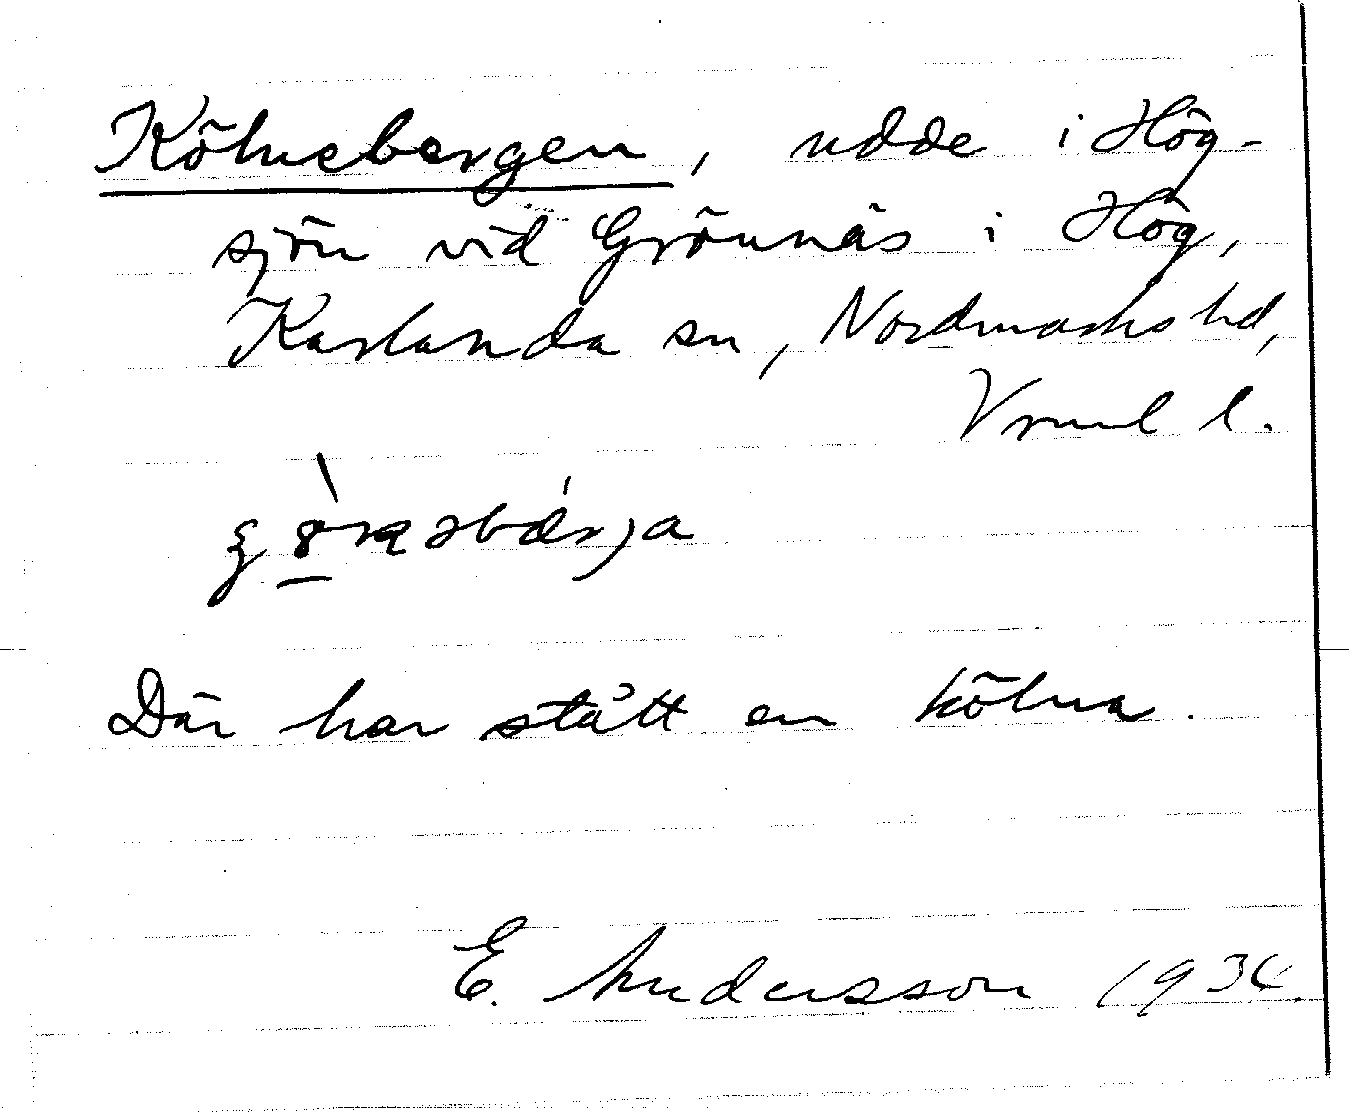 Kölnebergen, udde i Hög-
sjön vid Grönnäs i Hög,
Karlanda sn, Nordmarks hd,
Vrml l.
Där har stått en kölna.
E. Andersson 1934.